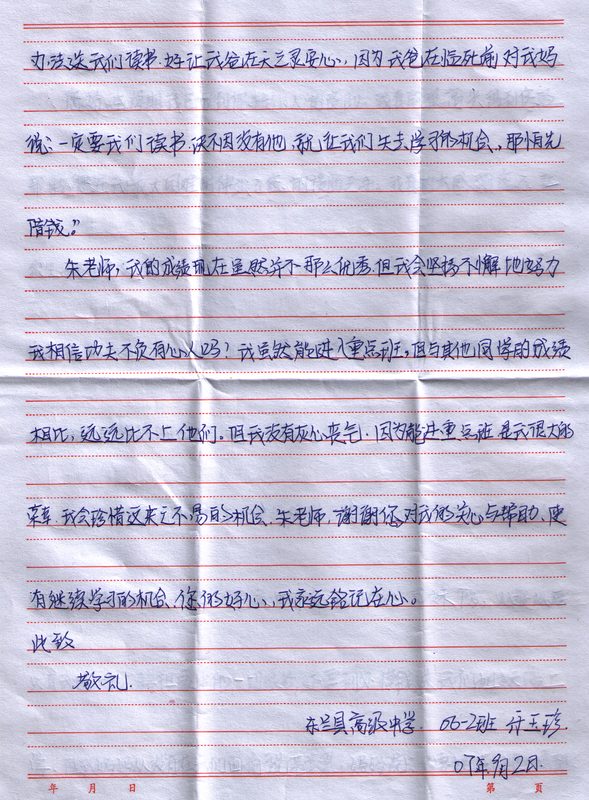 办法送我们读书,好让我爸在天之灵安心,因为我爸在临死前对我妈
说:一定要我们读书,决不因没有他,就让我们失去学习的机会,那怕先
赔钱。”
朱老师,我的成绩现在虽然并不那么优秀.但我会坚持不懈地努力
我相信功夫不负有心人吗?我虽然能进入重点班,但与其他同学的成绩
相比,远远比不上他们。但我没有灰心丧气.因为能进重点班是我很大的
荣幸.我会珍惜这来之不易的机会.朱老师,谢谢您对我的关心与帮助、使
有继续学习的机会,您的好心,我永远铭记在心。
此致
敬礼.
东兰县高级中学. 06-2班 玉珍.
07年9月2日.
年 月 日
第 页